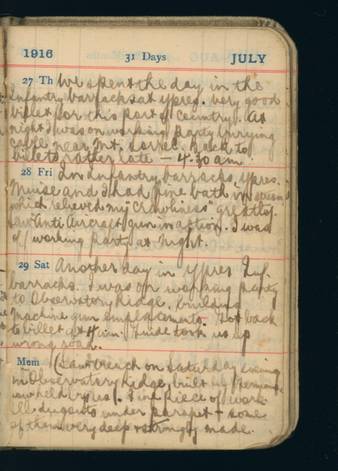 1916 31 Days JULY
27 Th We spent the day in the
Infantry barracks at Ypres. Very good
billet for this part of country. At
night I was on working party burying
cable near Mt. Sorrel. Back to
billets rather late - 4.30 am.
28 Fri In Infantry barracks, Ypres.
Muise and I had fine bath in
which relieved my "crawliness" greatly.
Saw Anti Aircraft gun in action. I was
on working party at night.
29 Sat Another day in Ypres Inf.
barracks. I was on working party
to Observatory Ridge, building
machine gun emplacements. Got back
to billet at 4 a.m. Guide took us up
wrong road.
Mem (Saw trench on Saturday evening
in Observatory Ridge, built by
when held Ypres). Fine piece of work
All dugouts under parapet & some
of them very deep & strongly made.